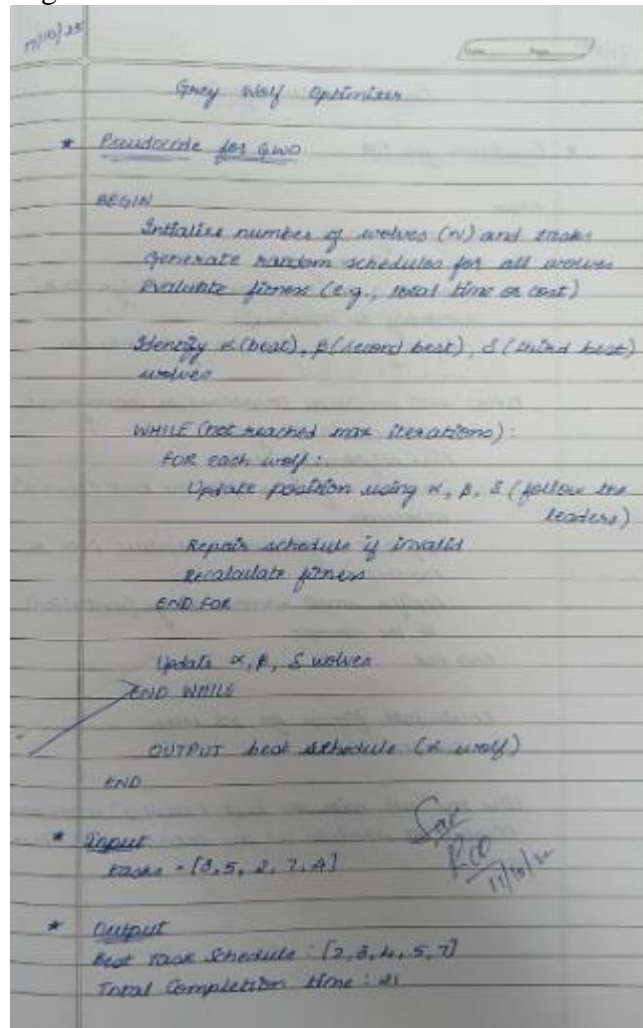 17/10/25
Grey Wolf Optimizer
* Pseudocode for GWO
BEGIN
Initialize number of wolves (N) and tasks
Generate random schedules for all wolves
Evaluate fitness (e.g., total time or cost)
Identify α (best), β (second best), δ (third best)
wolves
WHILE (not reached max iterations):
FOR each wolf:
Update position using α, β, δ (follow the
leaders)
Repair schedule if invalid
Recalculate fitness
END FOR
Update α, β, δ wolves
END WHILE
OUTPUT best schedule (α wolf)
END
* Input
tasks = [3, 5, 2, 7, 4]
* Output
Best Task Schedule : [2, 3, 4, 5, 7]
Total Completion time : 21